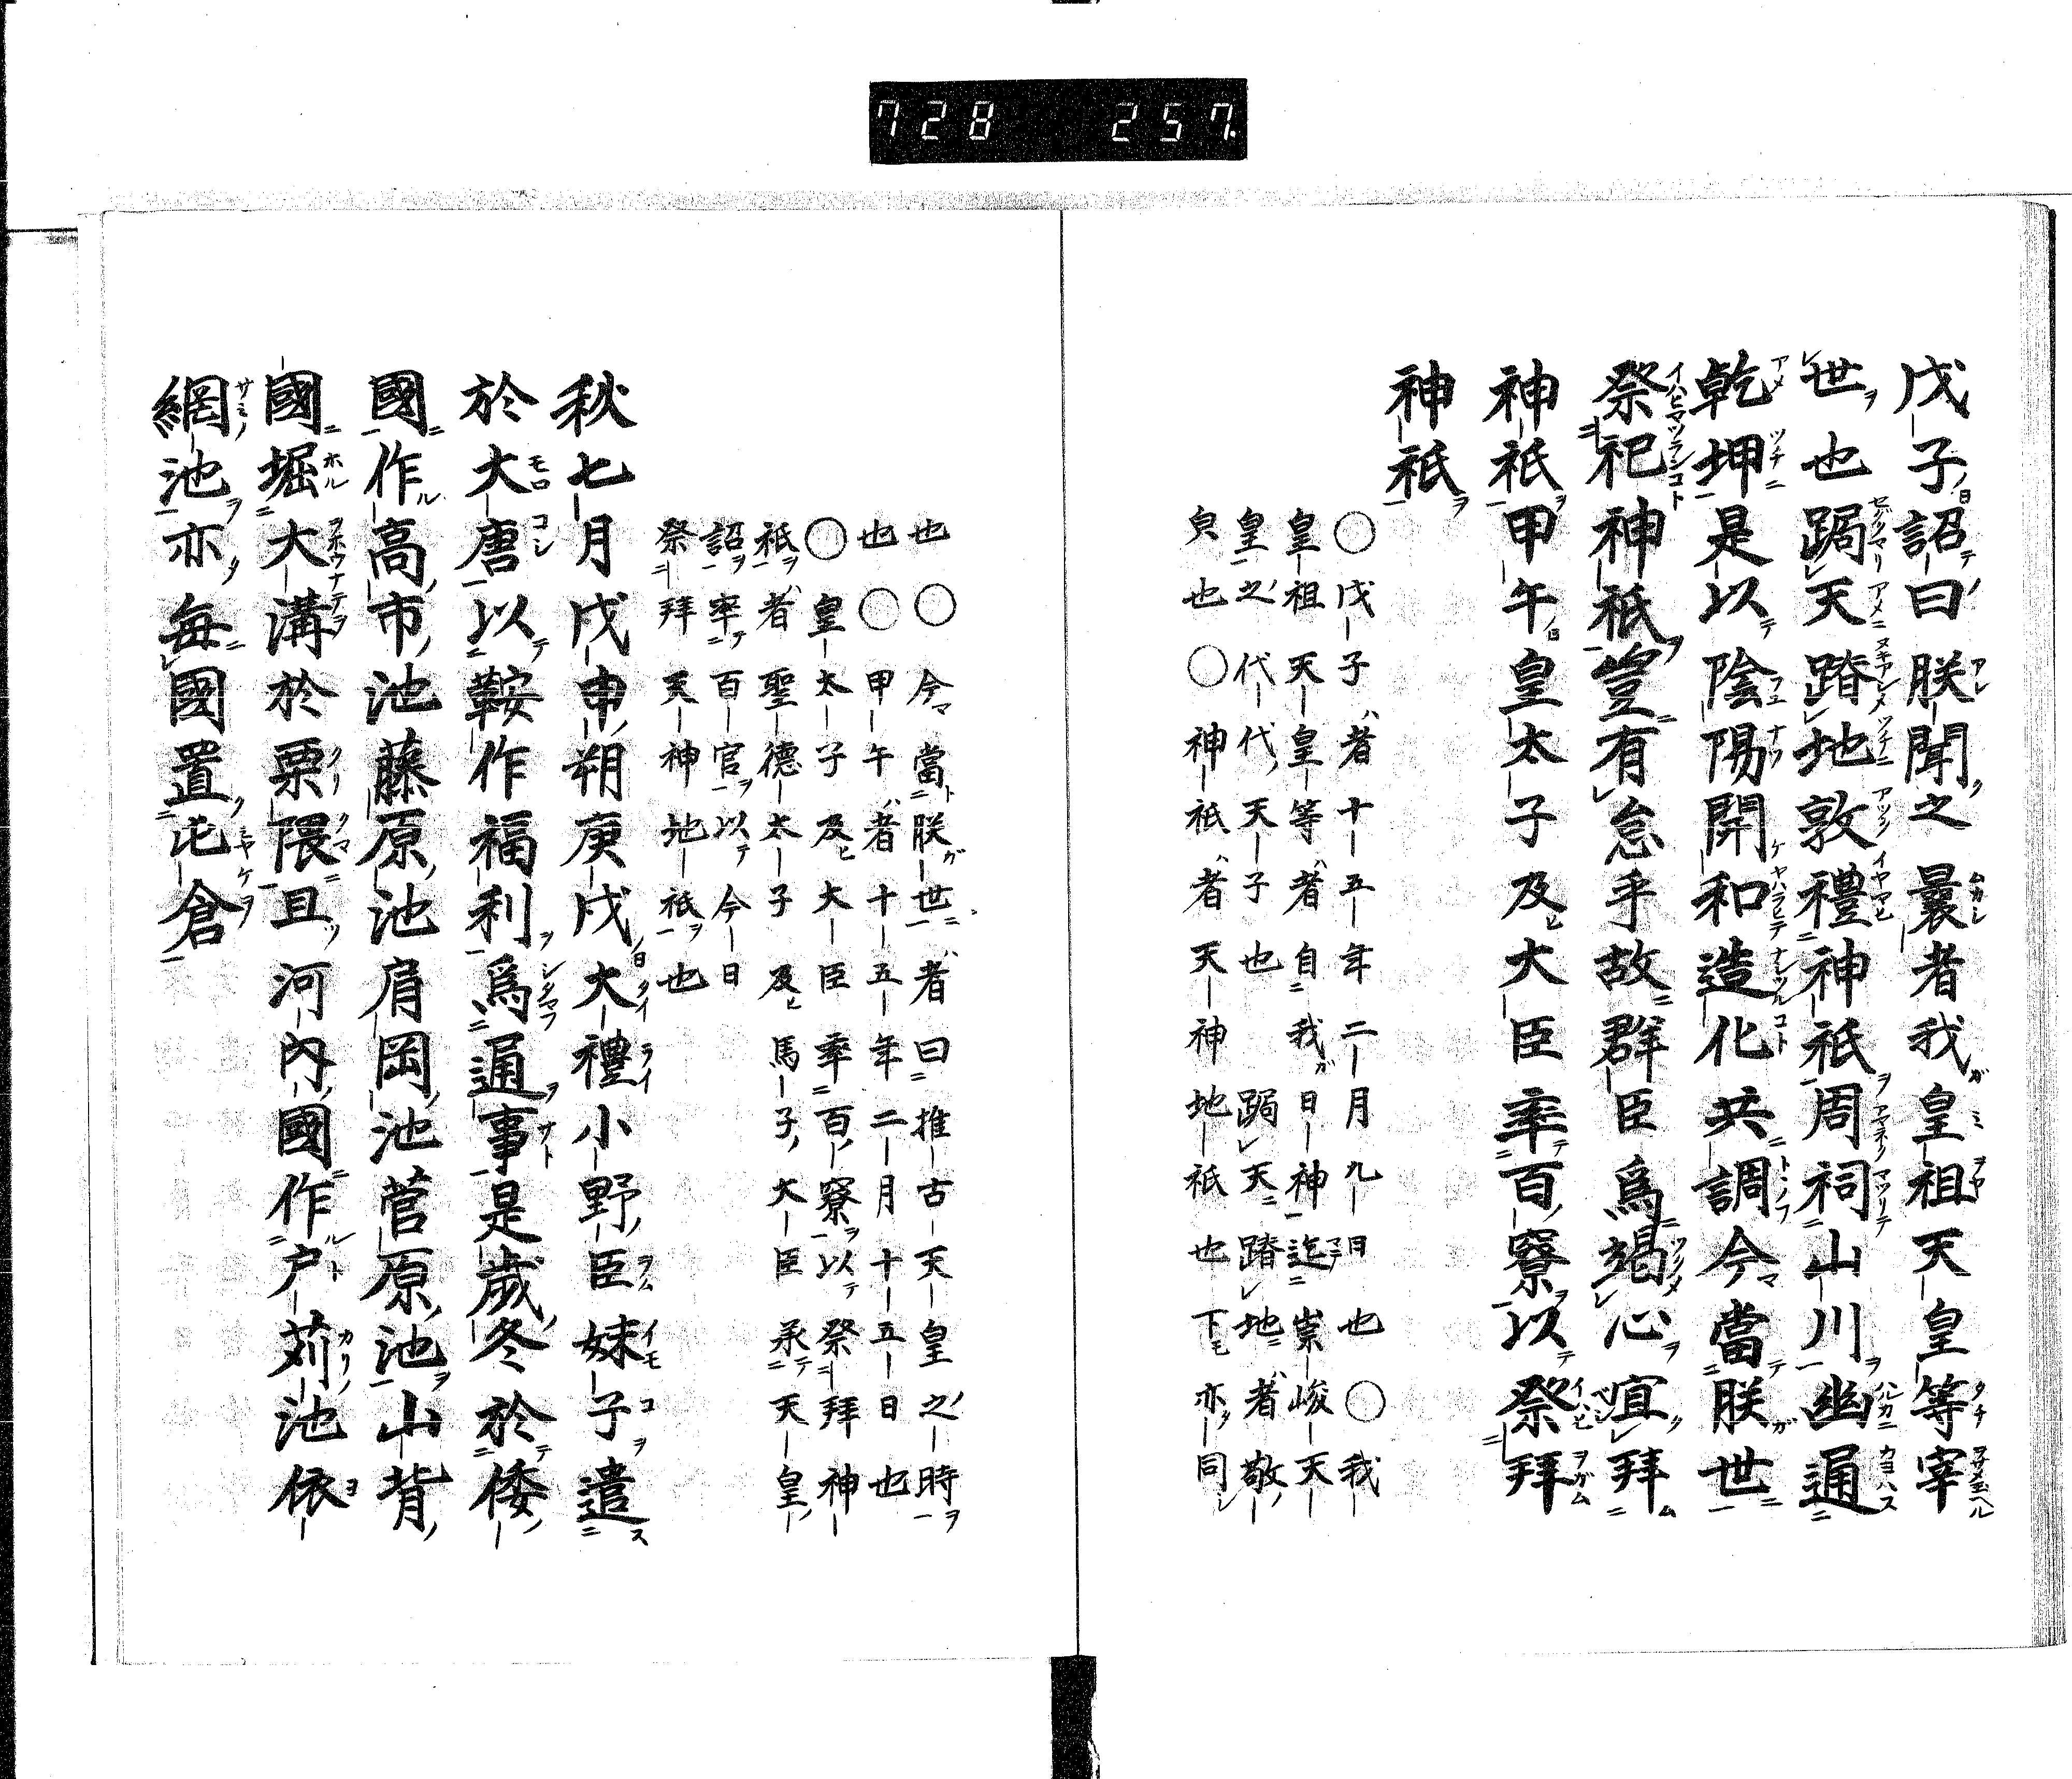 728 257
戊子詔曰朕聞之曩者我皇祖天皇等宰
世也跼天蹐地敦禮神祇周祠山川幽通
乾坤是以陰陽開和造化共調今當朕世
祭祀神祇豈有怠乎故群臣爲竭心宜拜
神祇甲午皇太子及大臣率百寮以祭拜
神祇
○戊子者十五年二月九日也○我
皇祖天皇等者自我日神迄崇峻天
皇之代代天子也跼天蹐地者敬
皃也○神祇者天神地祇也下亦同
也○今當朕世者曰推古天皇之時
也○甲午者十五年二月十五日也
○皇太子及大臣率百寮以祭拜神
祇者聖德太子及馬子大臣承天皇
詔率百官以今日
祭拜天神地祇也
秋七月戊申朔庚戌大禮小野臣妹子遣
於大唐以鞍作福利爲通事是歲冬於倭
國作高市池藤原池肩岡池菅原池山背
國堀大溝於栗隈且河內國作戸苅池依
網池亦每國置屯倉